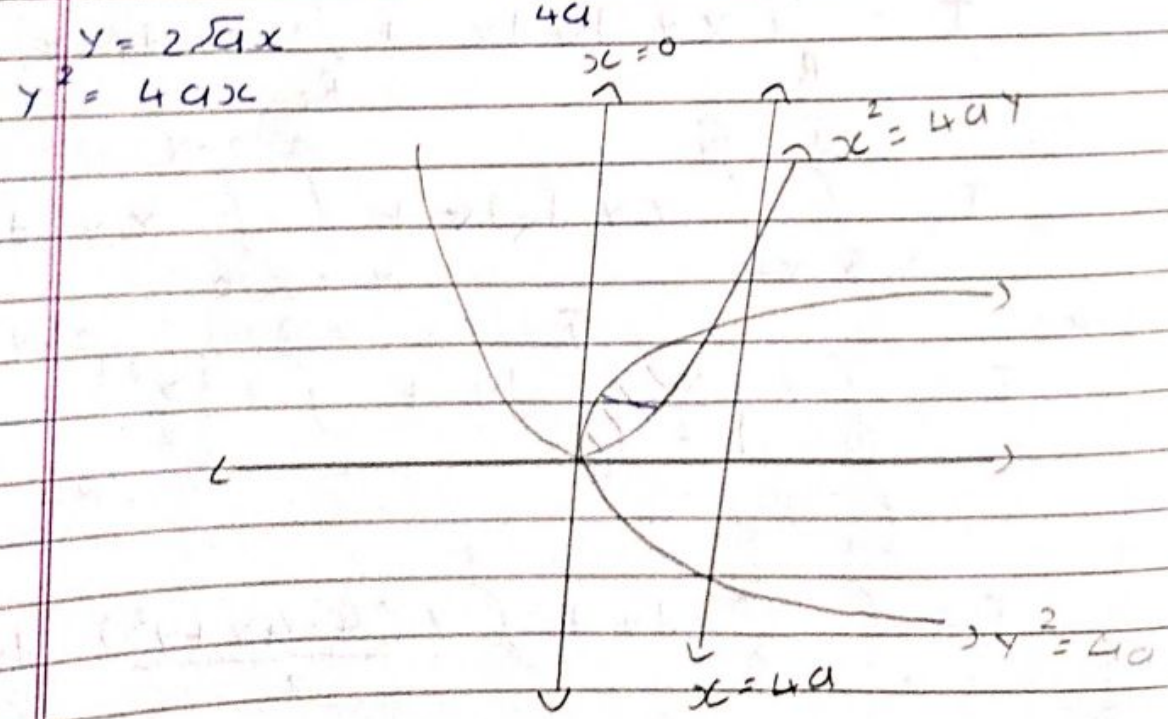 4a
y = 2√ax
x = 0
y² = 4ax
x² = 4ay
y² = 4a
x = 4a